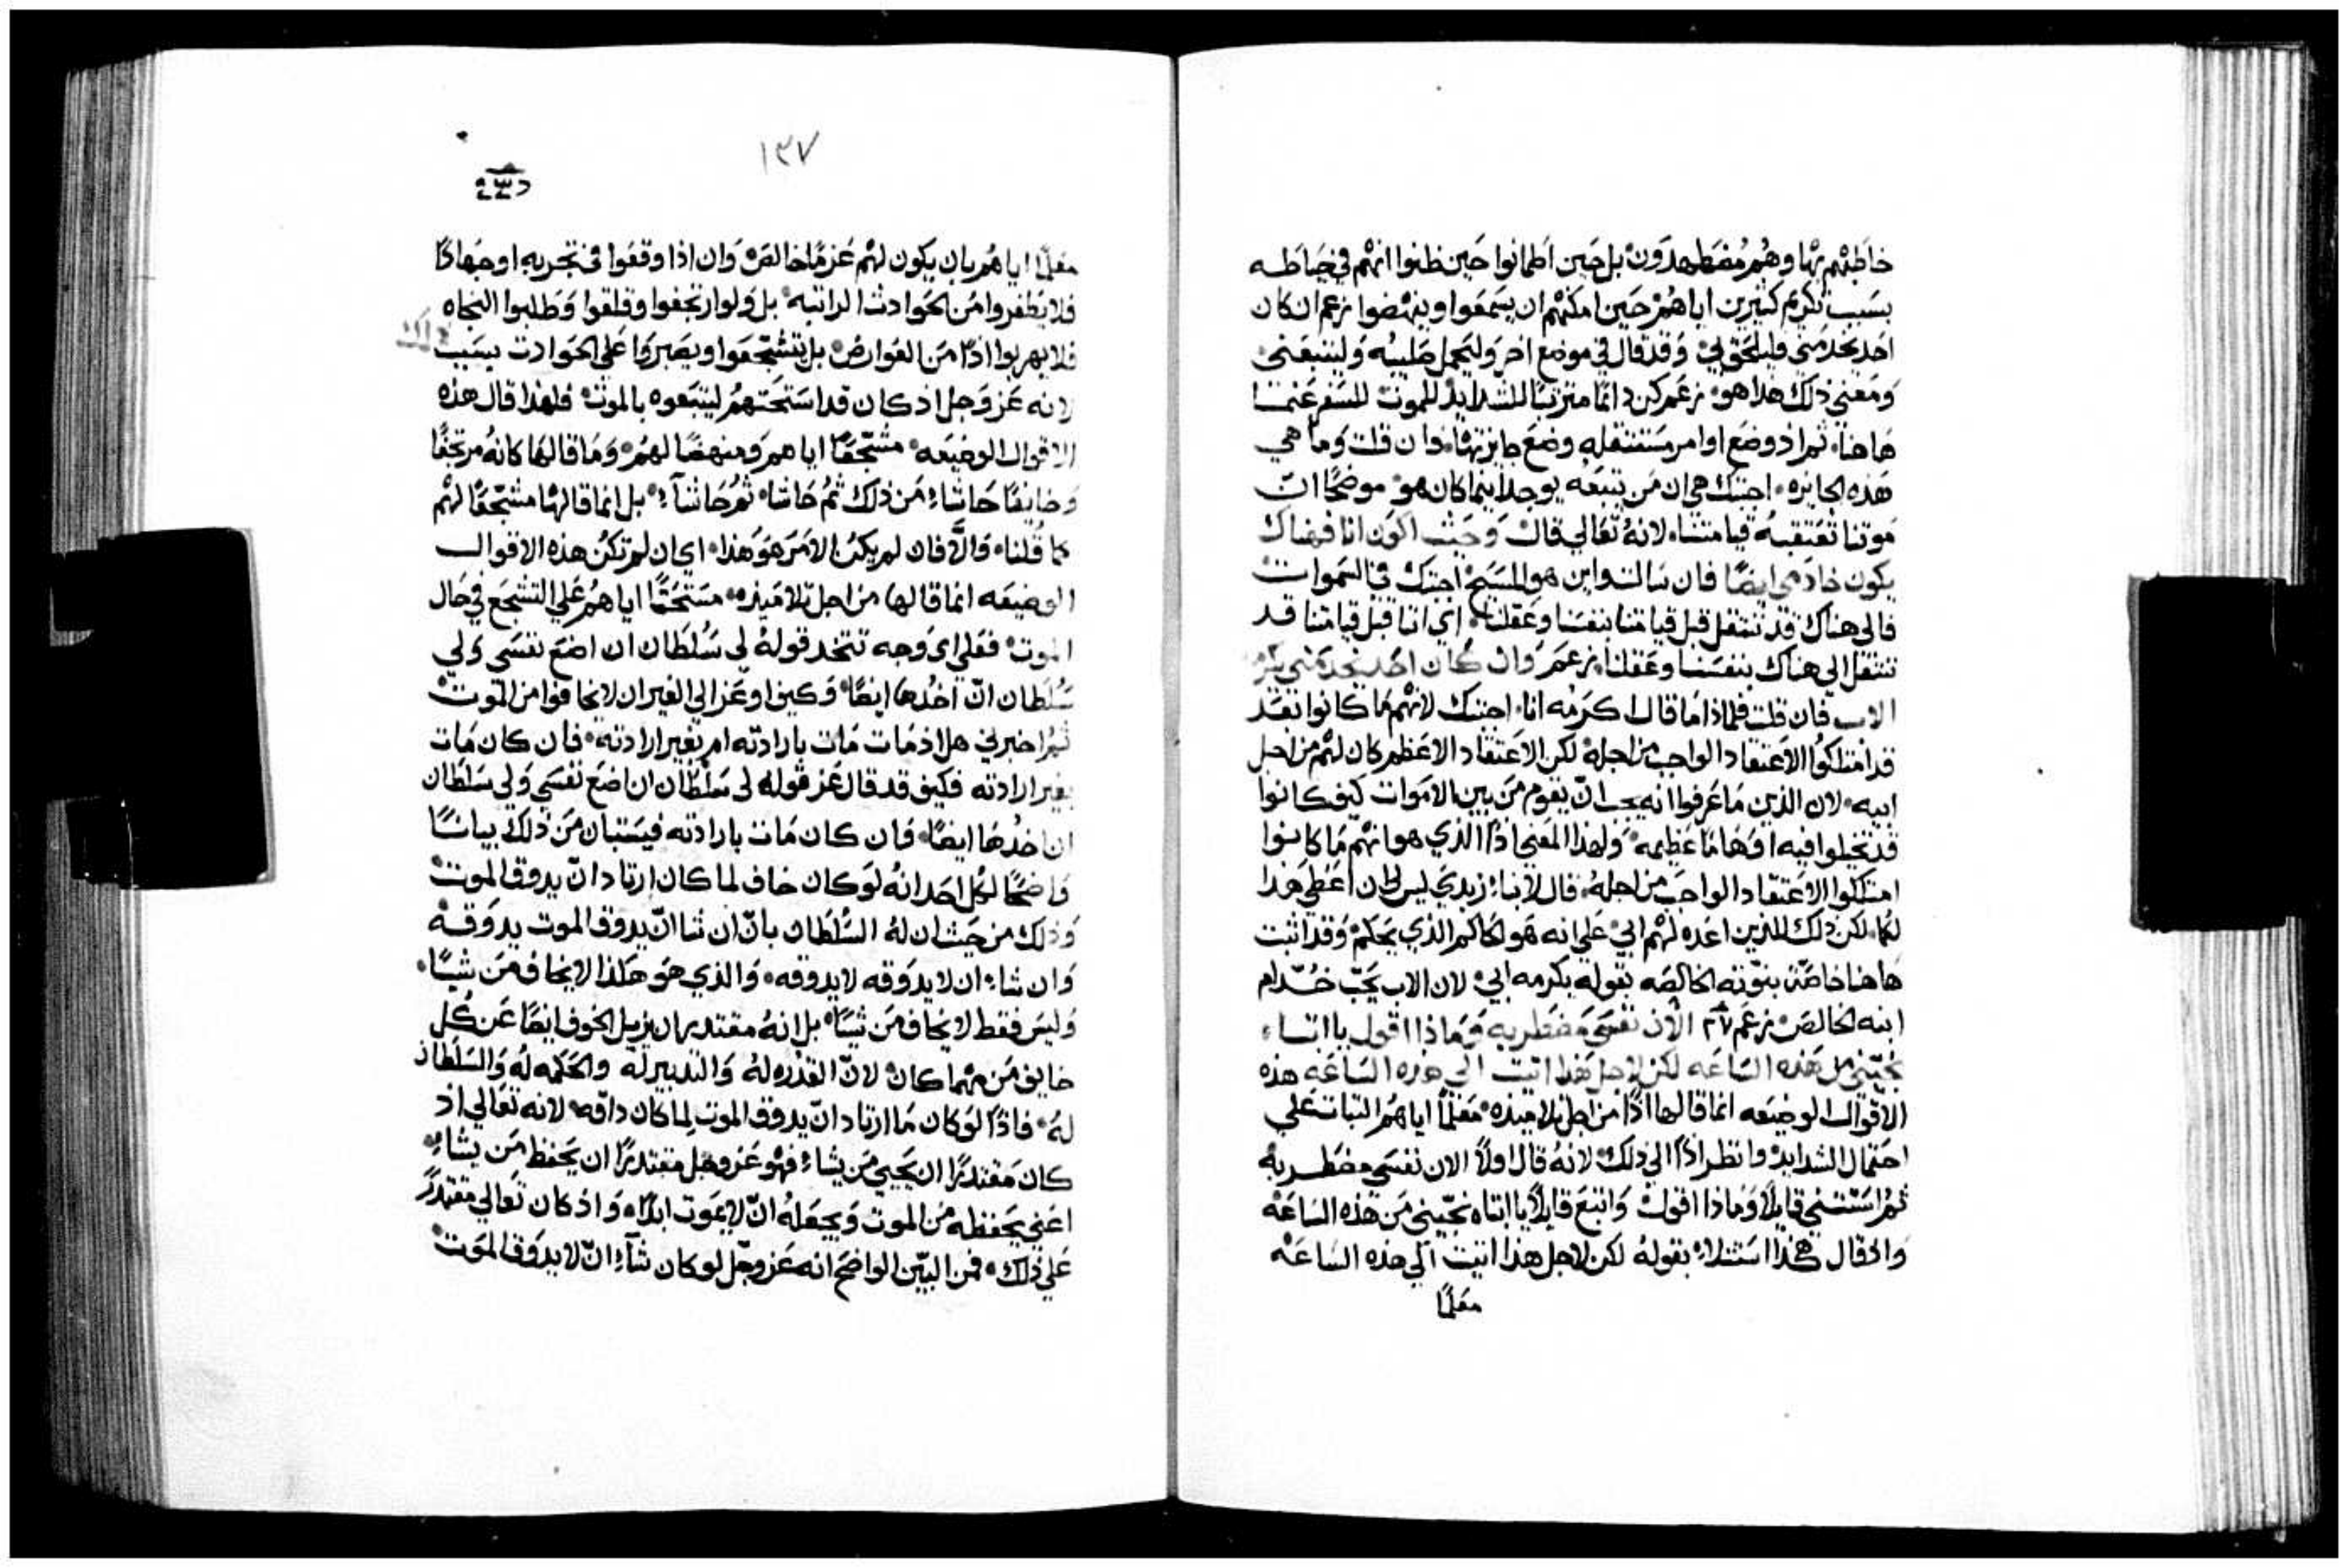 خاطبهم بها وهم مضطهدون بل حين اطمانوا حين ظنوا انهم في حياطه
بسبب تكريم كثيرين اياهم حين امكنهم ان يسمعوا وينهضوا زعم ان كان
احد يخدمني فليلحق بي وقد قال في موضع اخر وليحمل صليبه وليتبعني
ومعني ذلك هذا هو زعم كن دائما مترتبا للشدايد للموت للسفر عنها
هاهنا ثم اذ وضع اوامر مستثقله وضع جايزتها وان قلت وما هي
هذه الجايزه اجبتك هي ان من تبعه يوجد اينما كان هو موضحا ان
موتنا تعتقبه قيامتنا لانه تعالي قال وحيث اكون انا فهناك
يكون خادمي ايضا فان سالت واين هو المسيح اجبتك في السموات
فالي هناك قد ننتقل قبل قيامتنا بنفسنا وعقلنا اي اننا قبل قيامتنا قد
ننتقل الي هناك بنفسنا وعقلنا زعم وان كان احد يخدمني يكرمه
الاب فان قلت فلماذا ما قال اكرمه انا اجبتك لانهم ما كانوا تعد
قد امتلكوا الاعتقاد الواجب من اجله لكن الاعتقاد الاعظم كان لهم من اجل
ابيه لان الذين ما عرفوا انه يجب ان يقوم من بين الاموات كيف كانوا
قد تخيلوا فيه اوهاما عظيمه ولهذا المعني اذا الذي هو انهم ما كانوا
امتلكوا الاعتقاد الواجب من اجله قال لابناء زبدي ليس لي ان اعطي هذا
لكما لكن ذلك للذين اعده لهم ابي علي انه هو الحاكم الذي يحكم وقد اثبت
هاهنا خاصة بنوته الخالصه بقوله يكرمه ابي لان الاب يحب خدام
ابنه الخالص زعم ٢٧ الان نفسي مضطربه وماذا اقول يا ابتاه
نجيني من هذه الساعه لكن لاجل هذا اتيت الي هذه الساعه هذه
الاقوال الوضيعه انما قالها اذا من اجل تلاميذه معلما اياهم الثبات علي
احتمال الشدايد وانظر اذا الي ذلك لانه قال اولا الان نفسي مضطربه
ثم استثني قايلا وماذا اقول واتبع قايلا يا ابتاه نجيني من هذه الساعه
واذ قال هكذا استثناء بقوله لكن لاجل هذا اتيت الي هذه الساعه
معلما
١٣٧
معلما اياهم بان يكون لهم عزما خالصا وان اذا وقعوا في تجربه او جهاد
فلا يطفروا من الحوادث الراتبه بل ولو ارتجفوا وقلقوا وطلبوا النجاه
فلا يهربوا اذا من العوارض بل يتشجعوا ويصبروا علي الحوادث بسبب ذلك
لانه عز وجل اذ كان قد استحثهم ليتبعوه بالموت فلهذا قال هذه
الاقوال الوضيعه مشجعا اياهم ومنهضا لهم وما قالها كانه مرتجفا
وخايفا حاشاء من ذلك ثم حاشا ثم حاشاء بل انما قالها مشجعا لهم
كما قلنا والا فان لم يكن الامر هو هذا اي ان لم تكن هذه الاقوال
الوضيعه انما قالها من اجل تلاميذه مستحثا اياهم علي التشجع في حال
الموت فعلي اي وجه تتخد قوله لي سلطان ان اضع نفسي ولي
سلطان ان اخدها ايضا وكيف اوعز الي الغير ان لا يخافوا من الموت
ثم اخبرني هل اذ مات مات بارادته ام بغير ارادته فان كان مات
بغير ارادته فكيف قد قال عز قوله لي سلطان ان اضع نفسي ولي سلطان
ان اخدها ايضا فان كان مات بارادته فيستبان من ذلك بيانا
واضحا لكل احد انه لو كان خاف لما كان ارتاد ان يدوق الموت
وذلك من حيث ان له السلطان بان ان شا ان يدوق الموت يدوقه
وان شاء ان لا يدوقه لا يدوقه والذي هو هكذا لا يخاف من شيا
وليس فقط لا يخاف من شيا بل انه مقتدر ان يزيل الخوف ايضا عن كل
خايف من مهما كان لان القدره له والتدبير له والحكمه له والسلطان
له فاذا لو كان ما ارتاد ان يدوق الموت لما كان داقه لانه تعالي اذ
كان مقتدرا ان يحيي من يشاء فهو عز وجل مقتدرا ان يحفظ من يشاء
اعني يحفظه من الموت ويجعله ان لا يموت ابدا واذ كان تعالي مقتدرا
علي ذلك فمن البين الواضح انه عز وجل لو كان شاء ان لا يدوق الموت